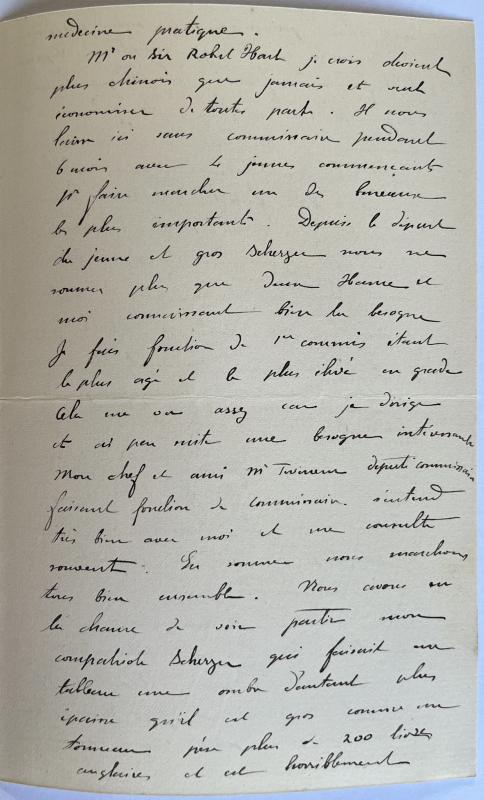 medecine pratique.
Mr ou Sir Robert Hart je crois devient
plus chinois que jamais et veut
économiser de toutes parts. Il nous
laisse ici sans commissaire pendant
6 mois avec 4 jeunes commençants
pr faire marcher un des bureaux
les plus importants. Depuis le départ
du jeune et gros Scherzer nous ne
sommes plus que deux Hanne et
moi connaissant bien la besogne
Je fais fonction de 1er commis étant
le plus agé et le plus élevé en grade
Cela me va assez car je dirige
et ai par suite une besogne intéressante
Mon chef et ami Mr deputi commissaire
faisant fonction de commissaire s'entend
très bien avec moi et me consulte
souvent. En somme nous marchons
tous bien ensemble. Nous avons eu
la chance de voir partir mon
compatriote Scherzer qui faisait au
tableau une ombre d'autant plus
épaisse qu'il est gros comme un
tonneau pèse plus de 200 livres
anglaises et est horriblement